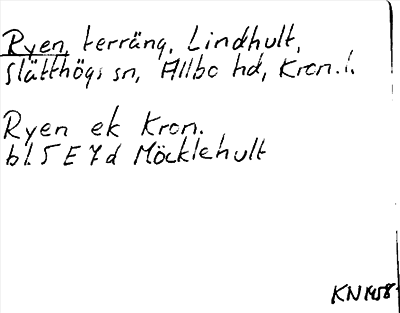 Ryen, terräng, Lindhult,
Slätthögs sn, Allbo hd, Kron. l.
Ryen ek Kron.
bl. 5 E 7 d Möcklehult
KN 1958